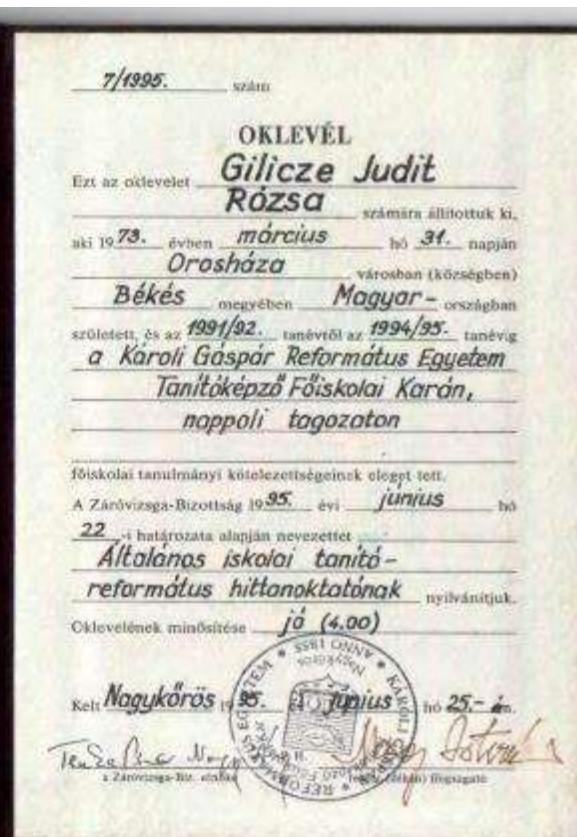 7/1995. szám
OKLEVÉL
Ezt az oklevelet Gilicze Judit
Rózsa számára állítottuk ki,
aki 1973. évben március hó 31. napján
Orosháza városban (községben)
Békés megyében Magyar- országban
született, és az 1991/92. tanévtől az 1994/95. tanévig
a Károli Gáspár Református Egyetem
Tanítóképző Főiskolai Karán,
nappali tagozaton
főiskolai tanulmányi kötelezettségeinek eleget tett.
A Záróvizsga-Bizottság 1995. évi június hó
22 -i határozata alapján nevezettet
Általános iskolai tanító-
református hittanoktatónak nyilvánítjuk.
Oklevelének minősítése jó (4.00)
Kelt Nagykőrös 1995. évi június hó 25.- én.
a Záróvizsga-Biz. elnöke főigazgató
REFORMÁTUS EGYETEM * ANNO 1855 * KÁROLI